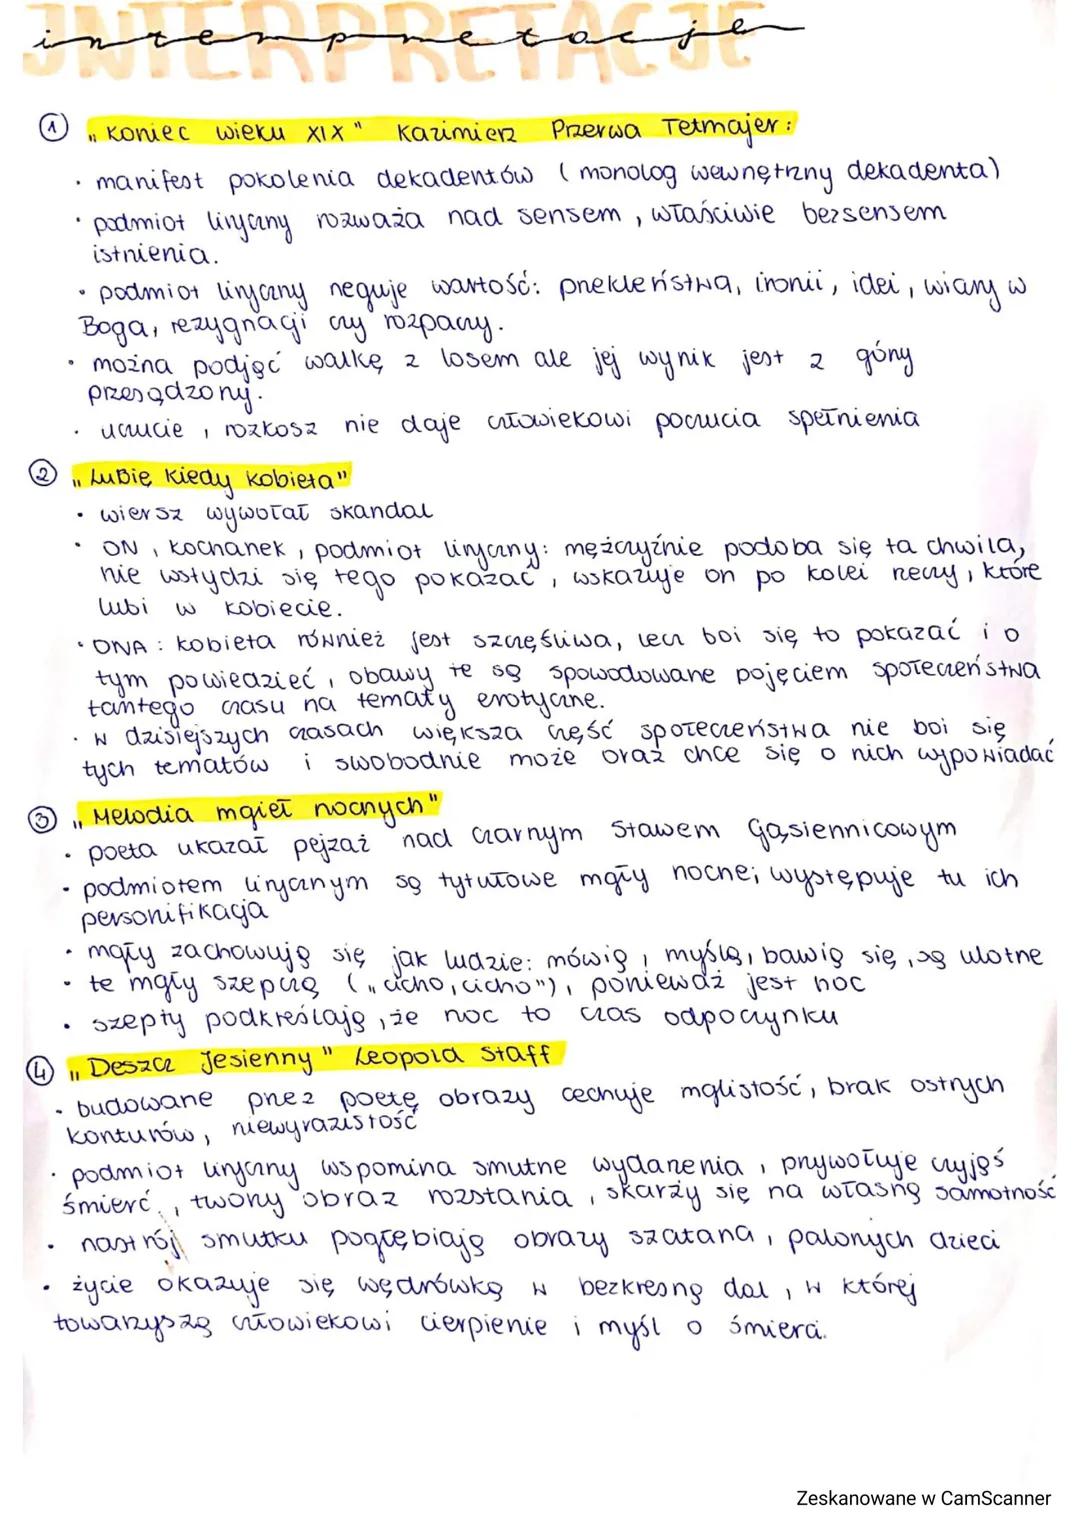 INTERPRETACJE
interpretacje
① „Koniec wieku XIX" Kazimierz Przerwa Tetmajer:
· manifest pokolenia dekadentów (monolog wewnętrzny dekadenta)
· podmiot liryczny rozważa nad sensem, właściwie bezsensem
istnienia.
· podmiot liryczny neguje wartość: przekleństwa, ironii, idei, wiary w
Boga, rezygnacji czy rozpaczy.
· można podjąć walkę z losem ale jej wynik jest z góry
przesądzony.
· uczucie, rozkosz nie daje człowiekowi poczucia spełnienia
② „Lubię kiedy kobieta"
· wiersz wywołał skandal
· ON, kochanek, podmiot liryczny: mężczyźnie podoba się ta chwila,
nie wstydzi się tego pokazać, wskazuje on po kolei rzeczy, które
lubi w kobiecie.
· ONA: kobieta również jest szczęśliwa, lecz boi się to pokazać i o
tym powiedzieć, obawy te są spowodowane pojęciem społeczeństwa
tamtego czasu na tematy erotyczne.
· w dzisiejszych czasach większa część społeczeństwa nie boi się
tych tematów i swobodnie może oraz chce się o nich wypowiadać
③ „Melodia mgieł nocnych"
· poeta ukazał pejzaż nad czarnym Stawem Gąsiennicowym
· podmiotem lirycznym są tytułowe mgły nocne; występuje tu ich
personifikacja
· mgły zachowują się jak ludzie: mówią, myślą, bawią się, są ulotne
· te mgły szepczą („cicho, cicho"), ponieważ jest noc
· szepty podkreślają, że noc to czas odpoczynku
④ „Deszcz Jesienny" Leopold Staff
· budowane przez poetę obrazy cechuje mglistość, brak ostrych
konturów, niewyrazistość
· podmiot liryczny wspomina smutne wydarzenia, przywołuje czyjąś
śmierć, tworzy obraz rozstania, skarży się na własną samotność
· nastrój smutku pogłębiają obrazy szatana, palonych dzieci
· życie okazuje się wędrówką w bezkresną dal, w której
towarzyszą człowiekowi cierpienie i myśl o śmierci.
Zeskanowane w CamScanner